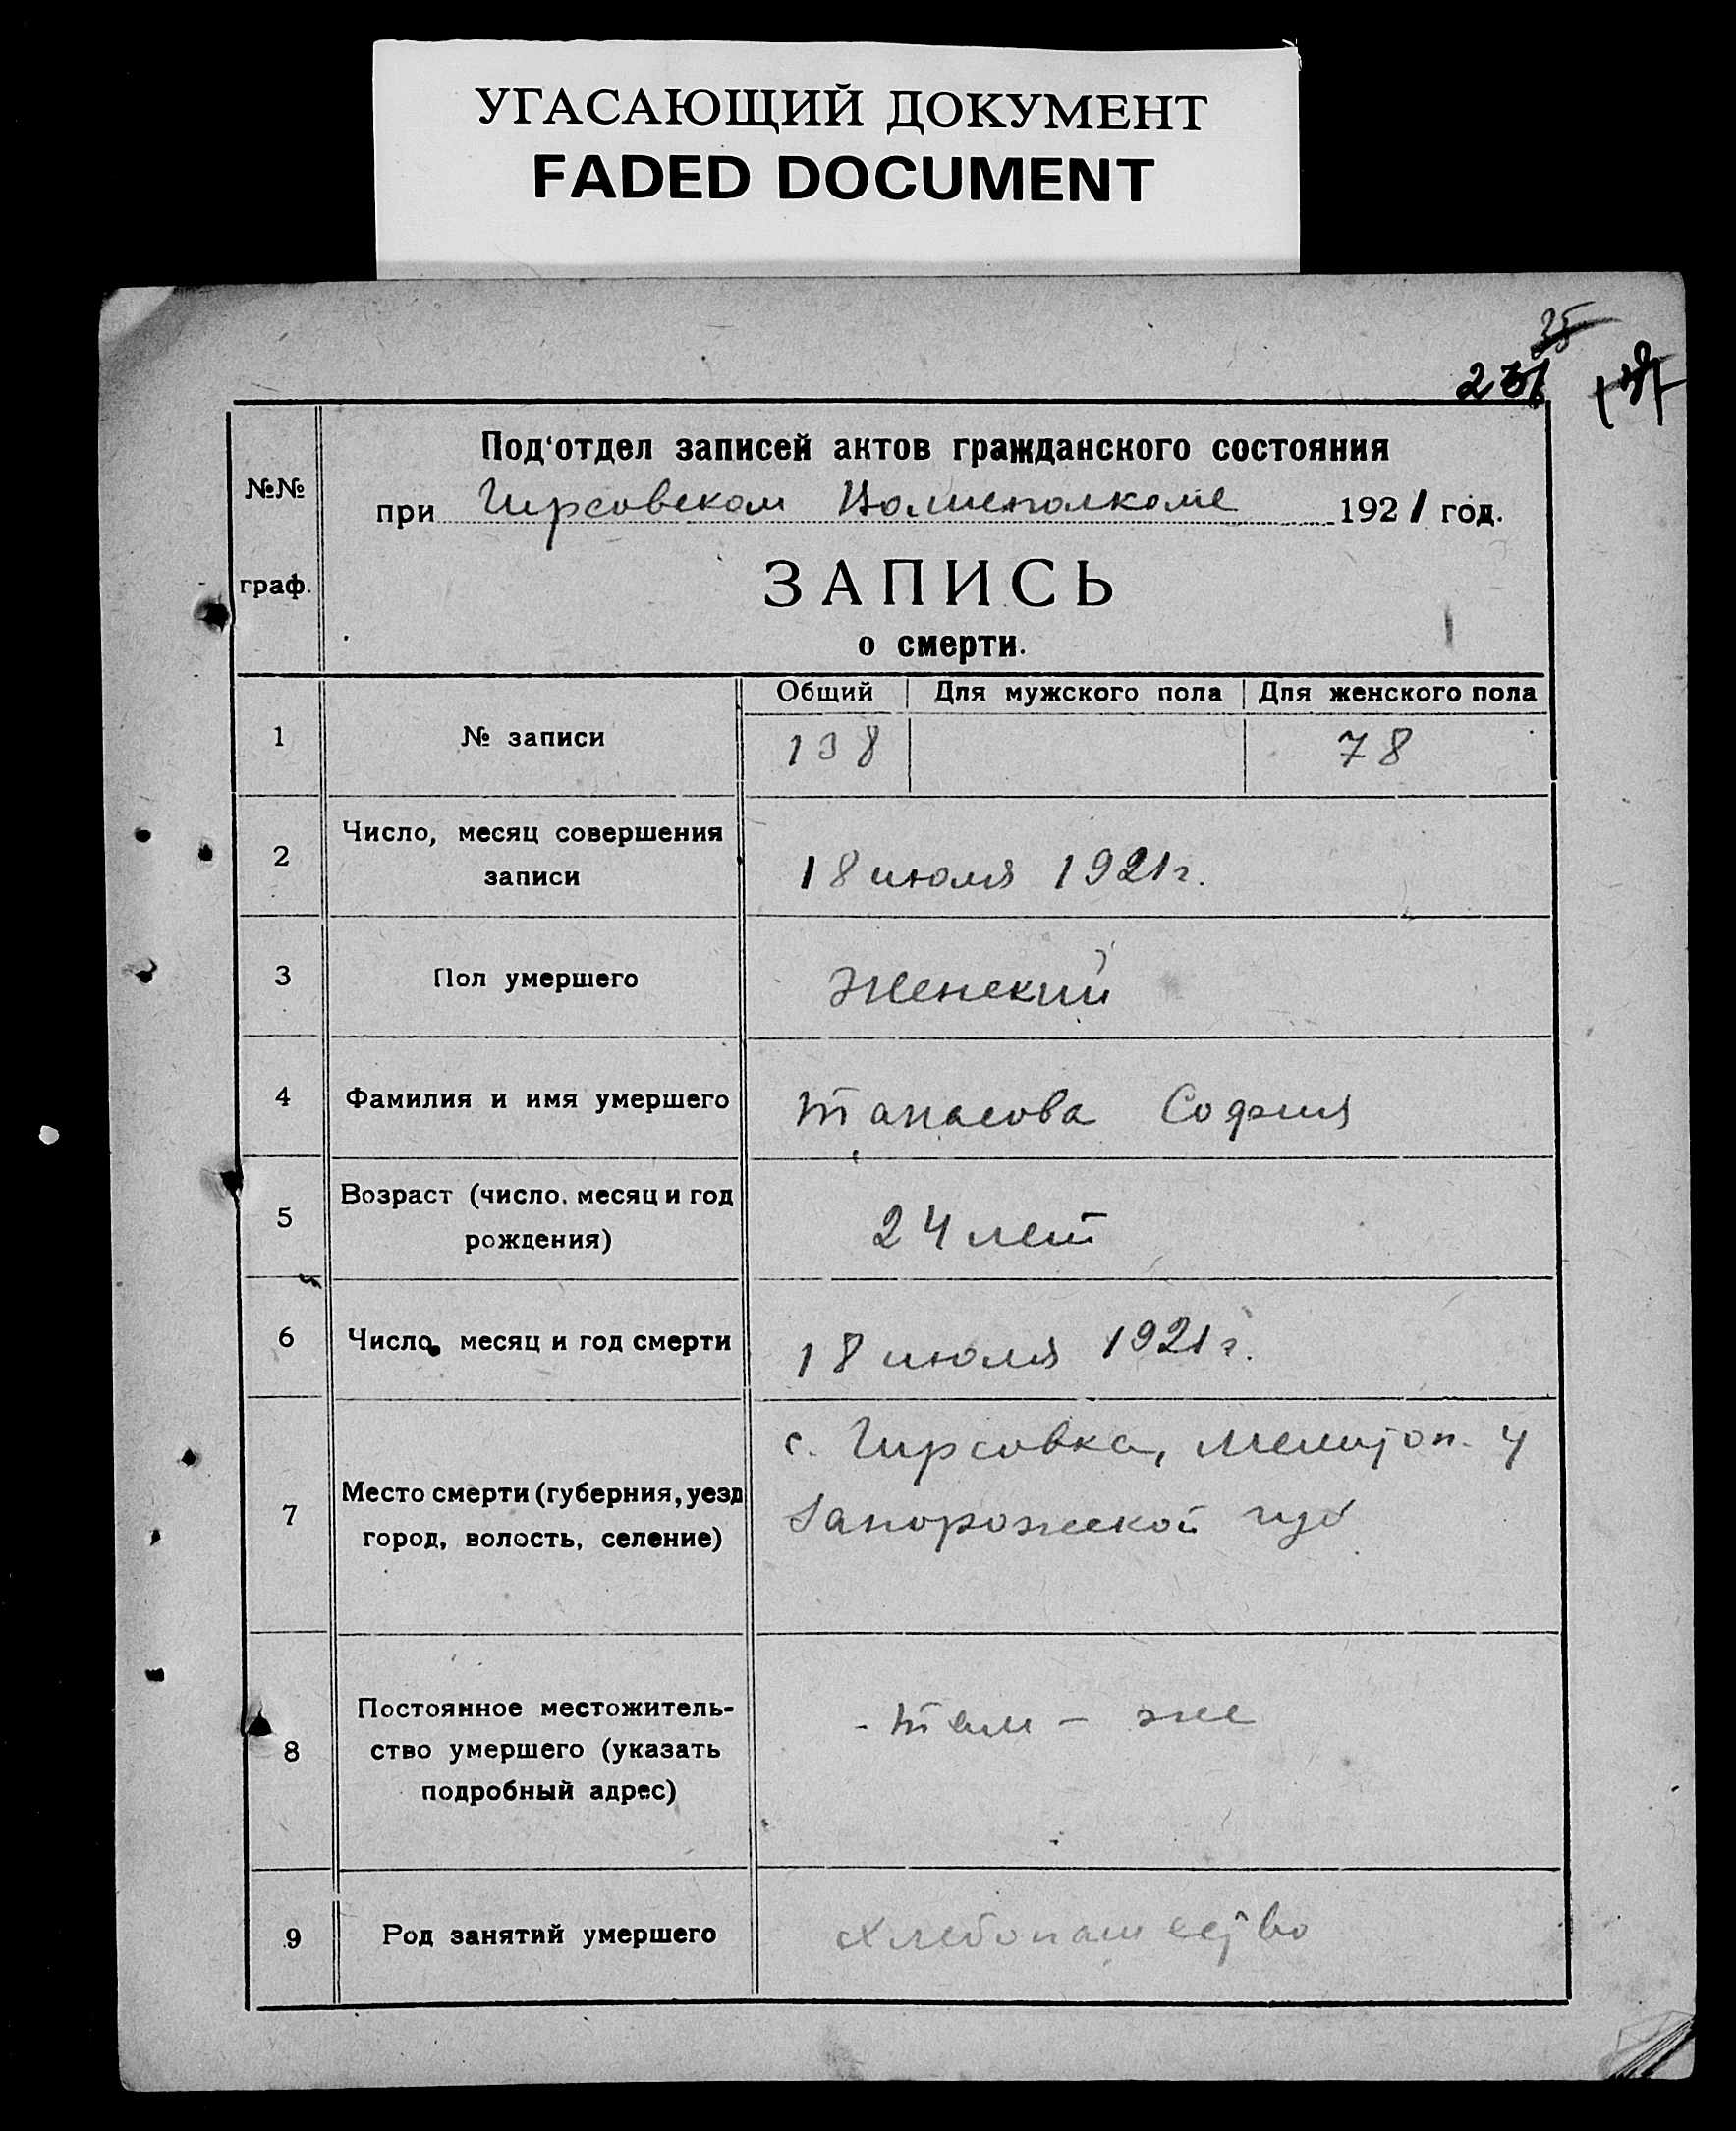 УГАСАЮЩИЙ ДОКУМЕНТ
FADED DOCUMENT
35
231
№№
граф.
Под'отдел записей актов гражданского состояния
при Гирсовском Волисполкоме 1921 год.
ЗАПИСЬ
о смерти.
Общий Для мужского пола Для женского пола
1 № записи 138 78
2 Число, месяц совершения
записи 18 июля 1921 г.
3 Пол умершего Женский
4 Фамилия и имя умершего Танасова София
5 Возраст (число, месяц и год
рождения) 24 лет
6 Число, месяц и год смерти 18 июля 1921 г.
с. Гирсовка, Мелитоп. у
7 Место смерти (губерния, уезд Запорожской губ
город, волость, селение)
8 Постоянное местожитель-
ство умершего (указать
подробный адрес) - там - же
9 Род занятий умершего хлебопашество